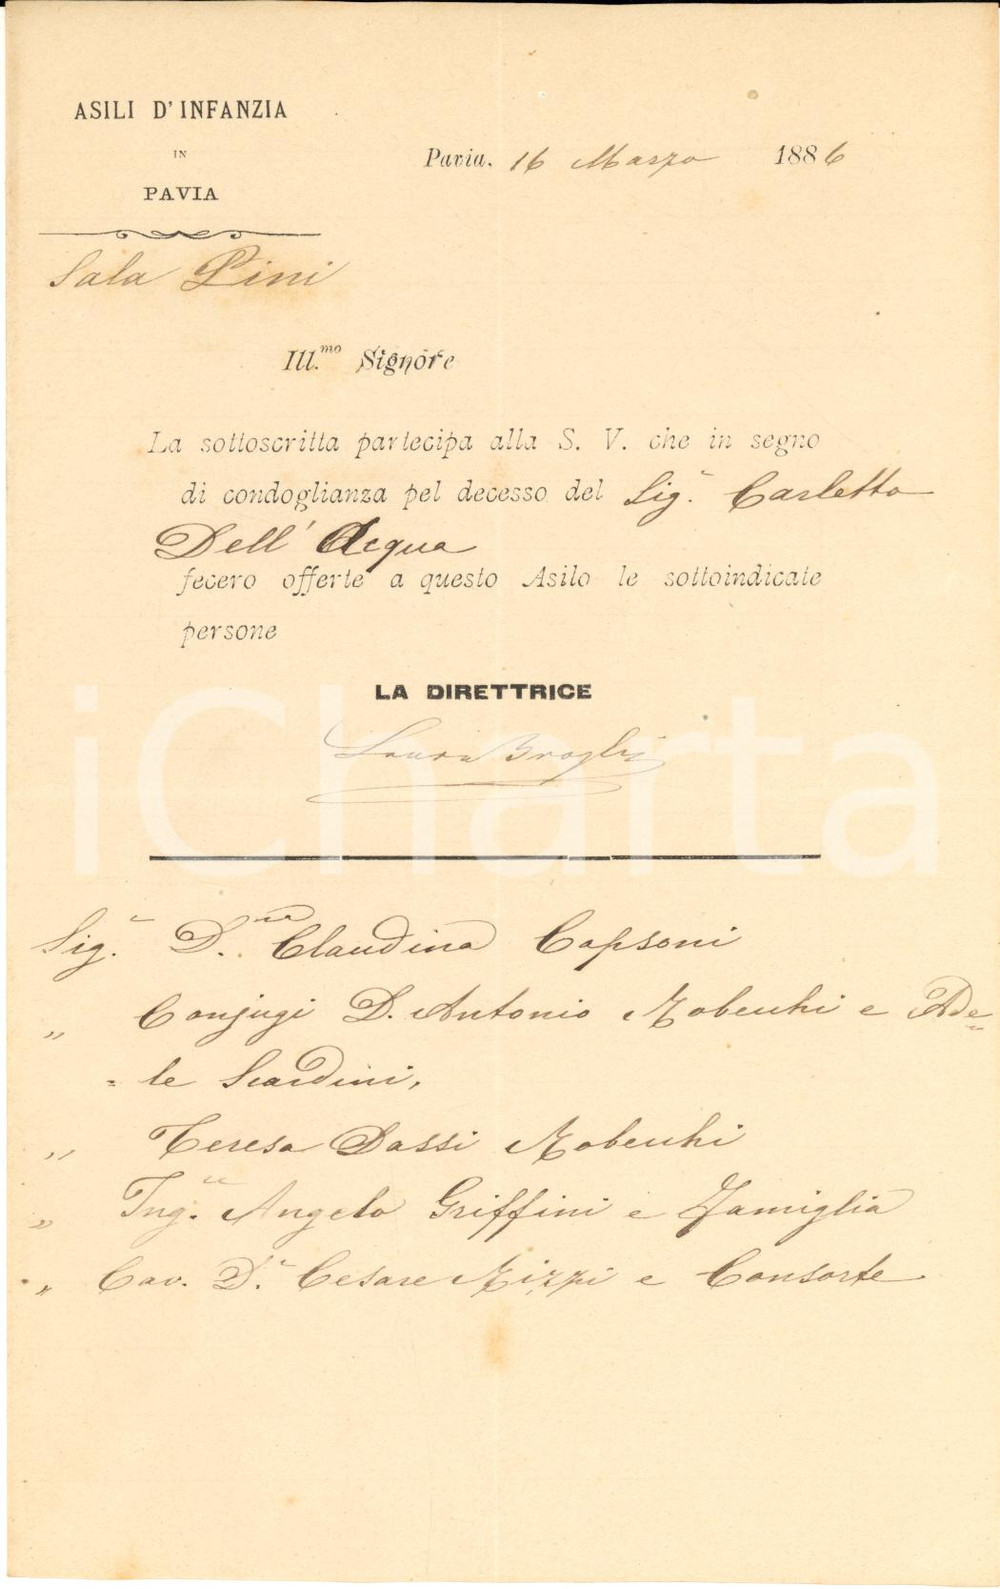 ASILI D'INFANZIA
IN
PAVIA
Pavia. 16 Marzo 1886
Sala Pini
Ill.mo Signore
La sottoscritta partecipa alla S. V. che in segno
di condoglianza pel decesso del Sig.r Carletto
Dell' Acqua
fecero offerte a questo Asilo le sottoindicate
persone
LA DIRETTRICE
Laura Broglij
iCharta
Sig.r D.na Claudina Capsoni
„ Conjugi D. Antonio Robecchi e Ade=
= le Scardini,
„ Teresa Dassi Robecchi
„ Ing.re Angelo Griffini e Famiglia
„ Cav. D.r Cesare Rizzi e Consorte